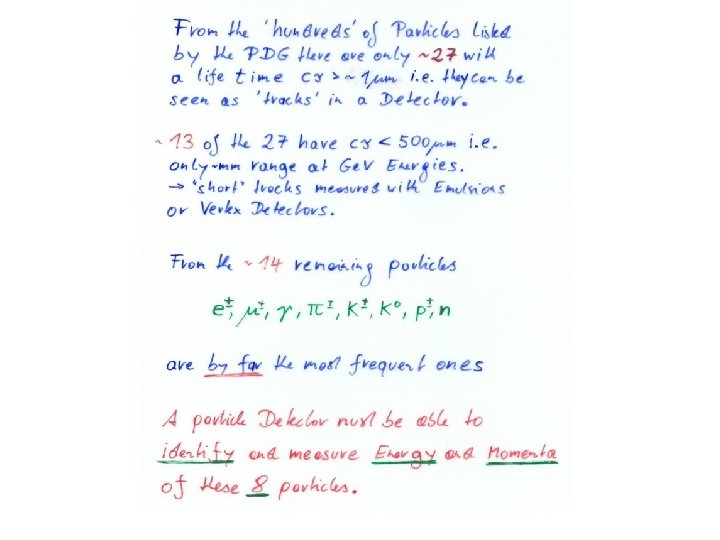 From the 'hundreds' of Particles listed
by the PDG there are only ~27 with
a life time cτ > ~ 1μm i.e. they can be
seen as 'tracks' in a Detector.
~ 13 of the 27 have cτ < 500μm i.e.
only ~mm range at GeV Energies.
→ "short" tracks measured with Emulsions
or Vertex Detectors.
From the ~ 14 remaining particles
e±, μ±, γ, π±, K±, K⁰, p±, n
are by far the most frequent ones
A particle Detector must be able to
identify and measure Energy and Momenta
of these 8 particles.